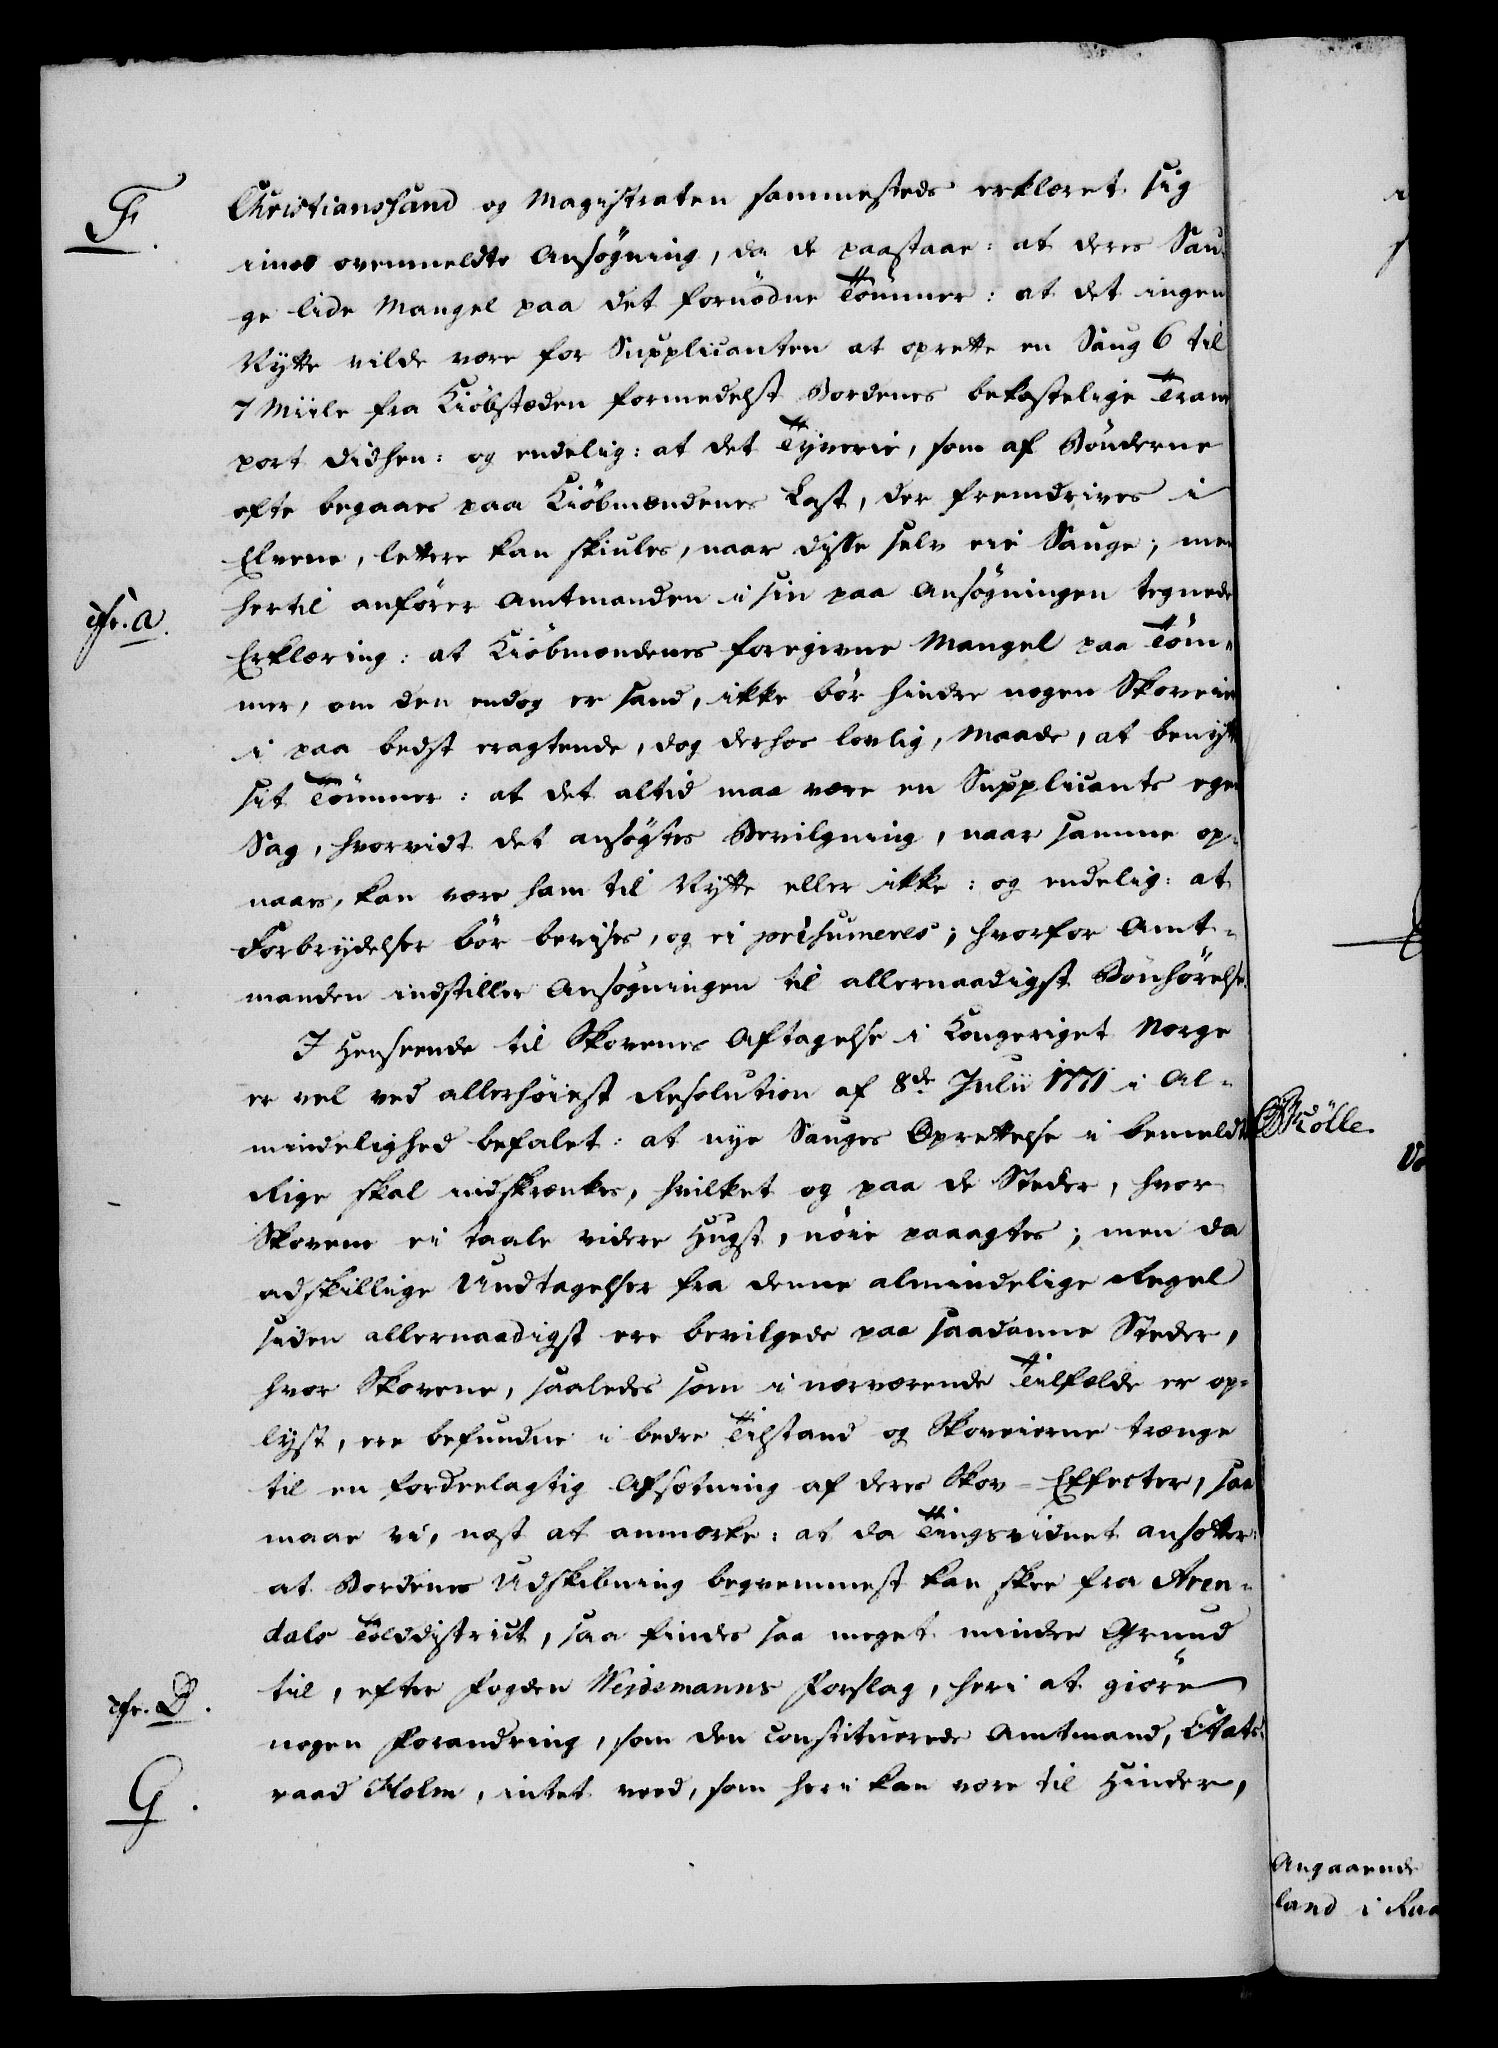 F.
Christianssand og Magistraten sammesteds erklæret sig
imod ovenmeldte Ansøgning, da de paastaae: at deres Sau-
ge lide Mangel paa det fornødne Tømmer: at det ingen
Nytte vilde være for Supplicanten at oprette en Saug 6 til
7 Miile fra Kiøbstæden formedelst Bordenes bekostelige Trans
port didhen: og endelig: at det Tyverie, som af Bønderne
ofte begaaes paa Kiøbmændenes Last, der fremdrives i
Elvene, lettere kan skiules, naar disse selv eie Sauge; men
cfr. a.
hertil anfører Amtmanden i sin paa Ansøgningen tegnede
Erklæring: at Kiøbmændenes foregivne Mangel paa Töm-
mer, om den endog er sand, ikke bør hindre nogen Skoveier
i paa bedst eragtende, dog derhos lovlig, Maade, at benytte
sit Tømmer: at det altid maa være en Supplicants egen
Sag, hvorvidt det ansøgtes Bevilgning, naar samme op-
naaes, kan være ham til Nytte eller ikke: og endelig: at
Forbrydelser bør bevises, og ei præsumeres; hvorfor Amt-
manden indstiller Ansøgningen til allernaadigst Bönhørelse.
I Henseende til Skovenes Aftagelse i Kongeriget Norge
er vel ved allerhøiest Resolution af 8de Julii 1771 i Al-
mindelighed befalet: at nye Sauges Oprettelse i bemeldte
Rige skal indskrænkes, hvilket og paa de Steder, hvor
Skovene ei taale videre Hugst, nøie paaagtes; men da
adskillige Undtagelser fra denne almindelige Regel
siden allernaadigst ere bevilgede paa saadanne Steder,
hvor Skovene, saaledes som i nærværende Tilfælde er op-
lyst, ere befundne i bedre Tilstand og Skoveierne trænge
til en fordeelagtig Afsætning af deres Skov-Effecter, saa
maae vi, næst at anmærke: at da Tingsvidnet ansætter:
at Bordenes Udskibning beqvemmest kan skee fra Aren-
dals Tolddistrict, saa findes saa meget mindre Grund
cfr. D.
til, efter Fogden Weidemanns Forslag, heri at giøre
nogen Forandring, som den constituerede Amtmand, Etats-
G.
raad Holm, intet veed, som heri kan være til Hinder,
Angaaende
land i Raa